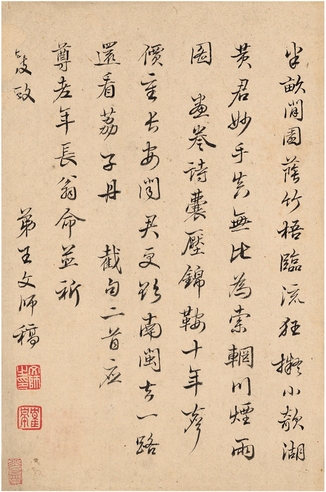 半畝閒園蔭竹梧臨流狂擬小欹湖
黄君妙手真無比為索輞川煙雨
圖 畫卷诗囊壓錦鞍十年聲
價重长安聞君更欲南閩去一路
還看荔子丹 截句二首应
尊彦年長翁命並祈
教政
弟王文师稿